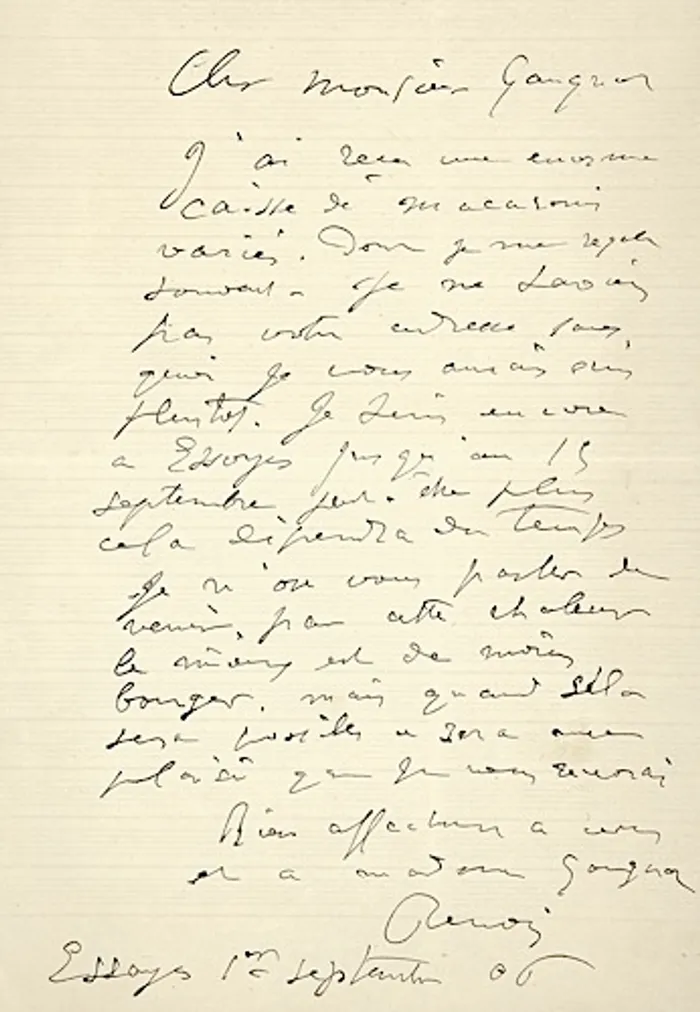 Cher Monsieur Gangnat
J'ai reçu une enorme
caisse de macaronis
variés. Dont je me regale
souvent. Je ne savais
pas votre adresse sans
quoi je vous aurais ecris
plutot. Je suis encore
a Essoyes jusqu'au 15
septembre peut-être plus
cela dépendra du temps
Je n'ose vous parler de
venir, par cette chaleur
le mieux est de moins
bouger, mais quand cela
sera possible ce sera avec
plaisir que je vous reverrai
Bien affectueux a vous
et a madame Gangnat
Renoir
Essoyes 1er septembre 06